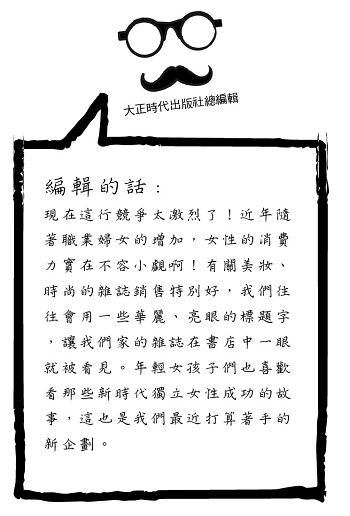 大正時代出版社總編輯
編輯的話：
現在這行競爭太激烈了！近年隨
著職業婦女的增加，女性的消費
力實在不容小覷啊！有關美妝、
時尚的雜誌銷售特別好，我們往
往會用一些華麗、亮眼的標題字
，讓我們家的雜誌在書店中一眼
就被看見。年輕女孩子們也喜歡
看那些新時代獨立女性成功的故
事，這也是我們最近打算著手的
新企劃。